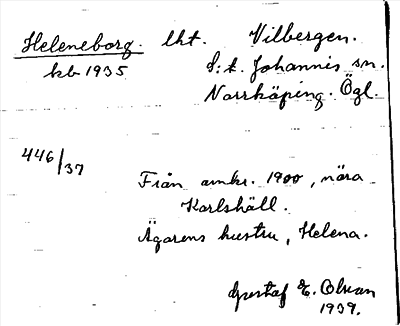 Heleneborg. lht. Vilbergen.
kb 1935 S:t. Johannis sn.
Norrköping. Ögl.
446/37
Från omkr. 1900, nära
Karlshäll.
Ägarens hustru, Helena.
Gustaf E.
1939.